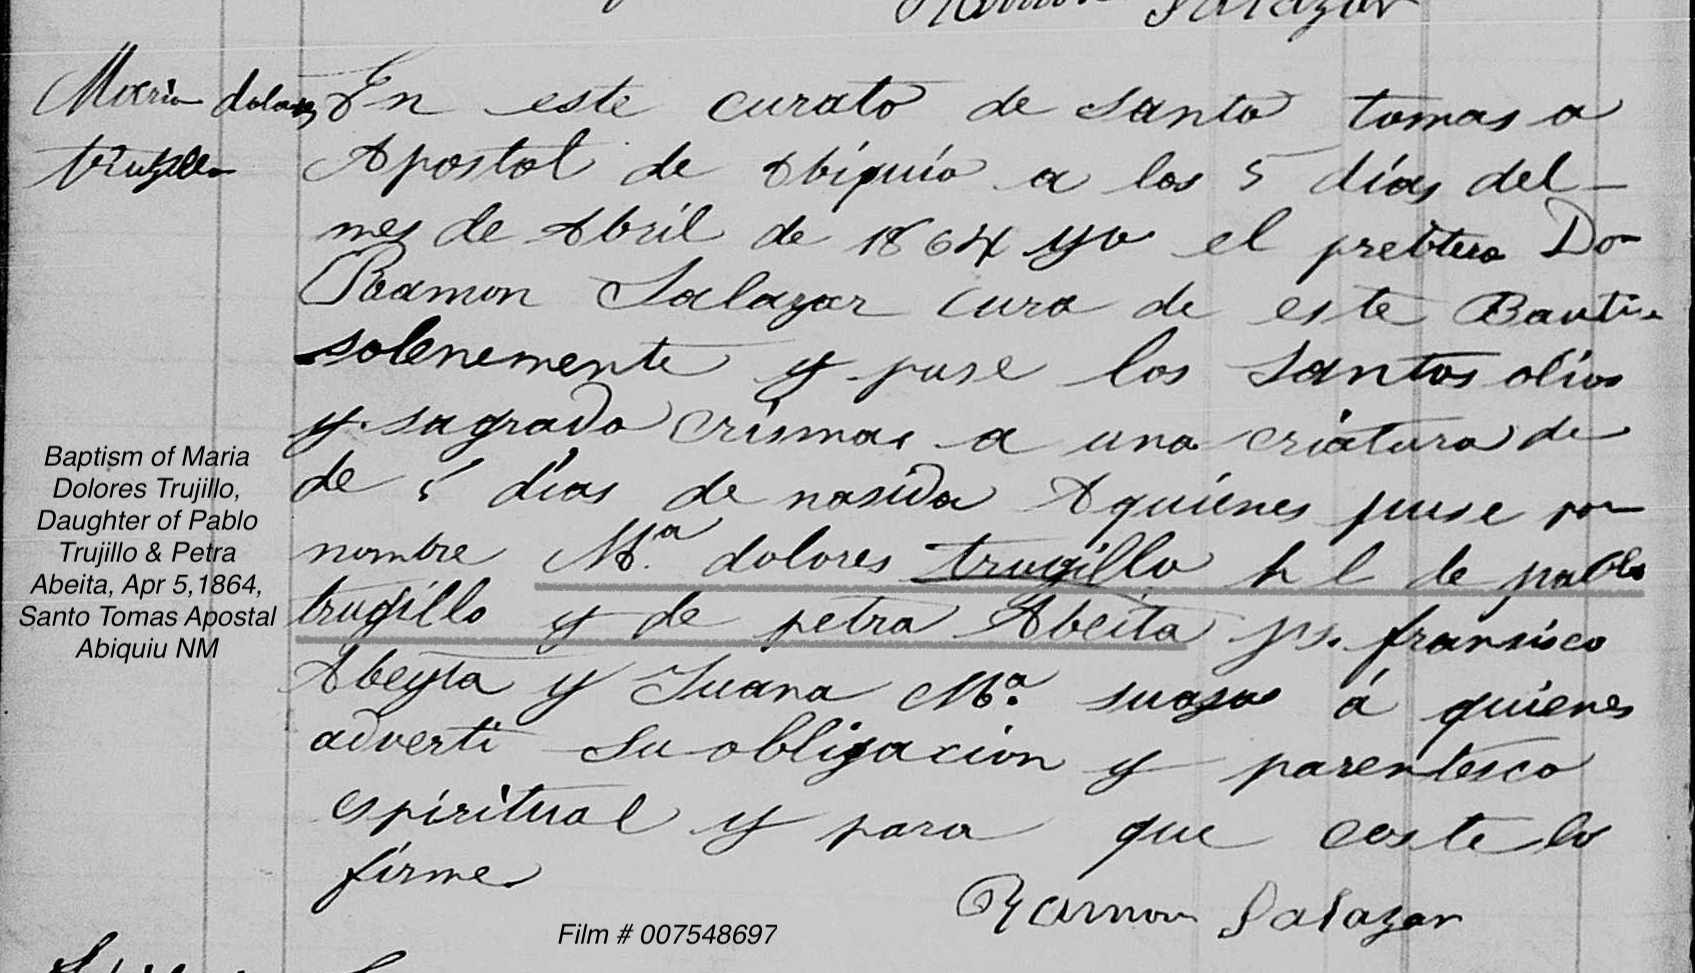 Ramon Salazar
Maria dolores
trujillo
En este curato de santo tomas a
Apostol de Abiquio a los 5 días del
mes de Abril de 1864 yo el prebtero Don
Ramon Salazar cura de este Bautise
solenemente y puse los santos olios
y sagrado crismas a una criatura de
de 5 días de nasida Aquienes puse por
nombre Ma. dolores trugillo h l de pablo
trugillo y de petra Abeita ps. fransisco
Abeyta y Juana Ma. suaso á quienes
adverti su obligacion y parentesco
espiritual y para que coste lo
firme
Ramon Salazar
Baptism of Maria
Dolores Trujillo,
Daughter of Pablo
Trujillo & Petra
Abeita, Apr 5,1864,
Santo Tomas Apostal
Abiquiu NM
Film # 007548697